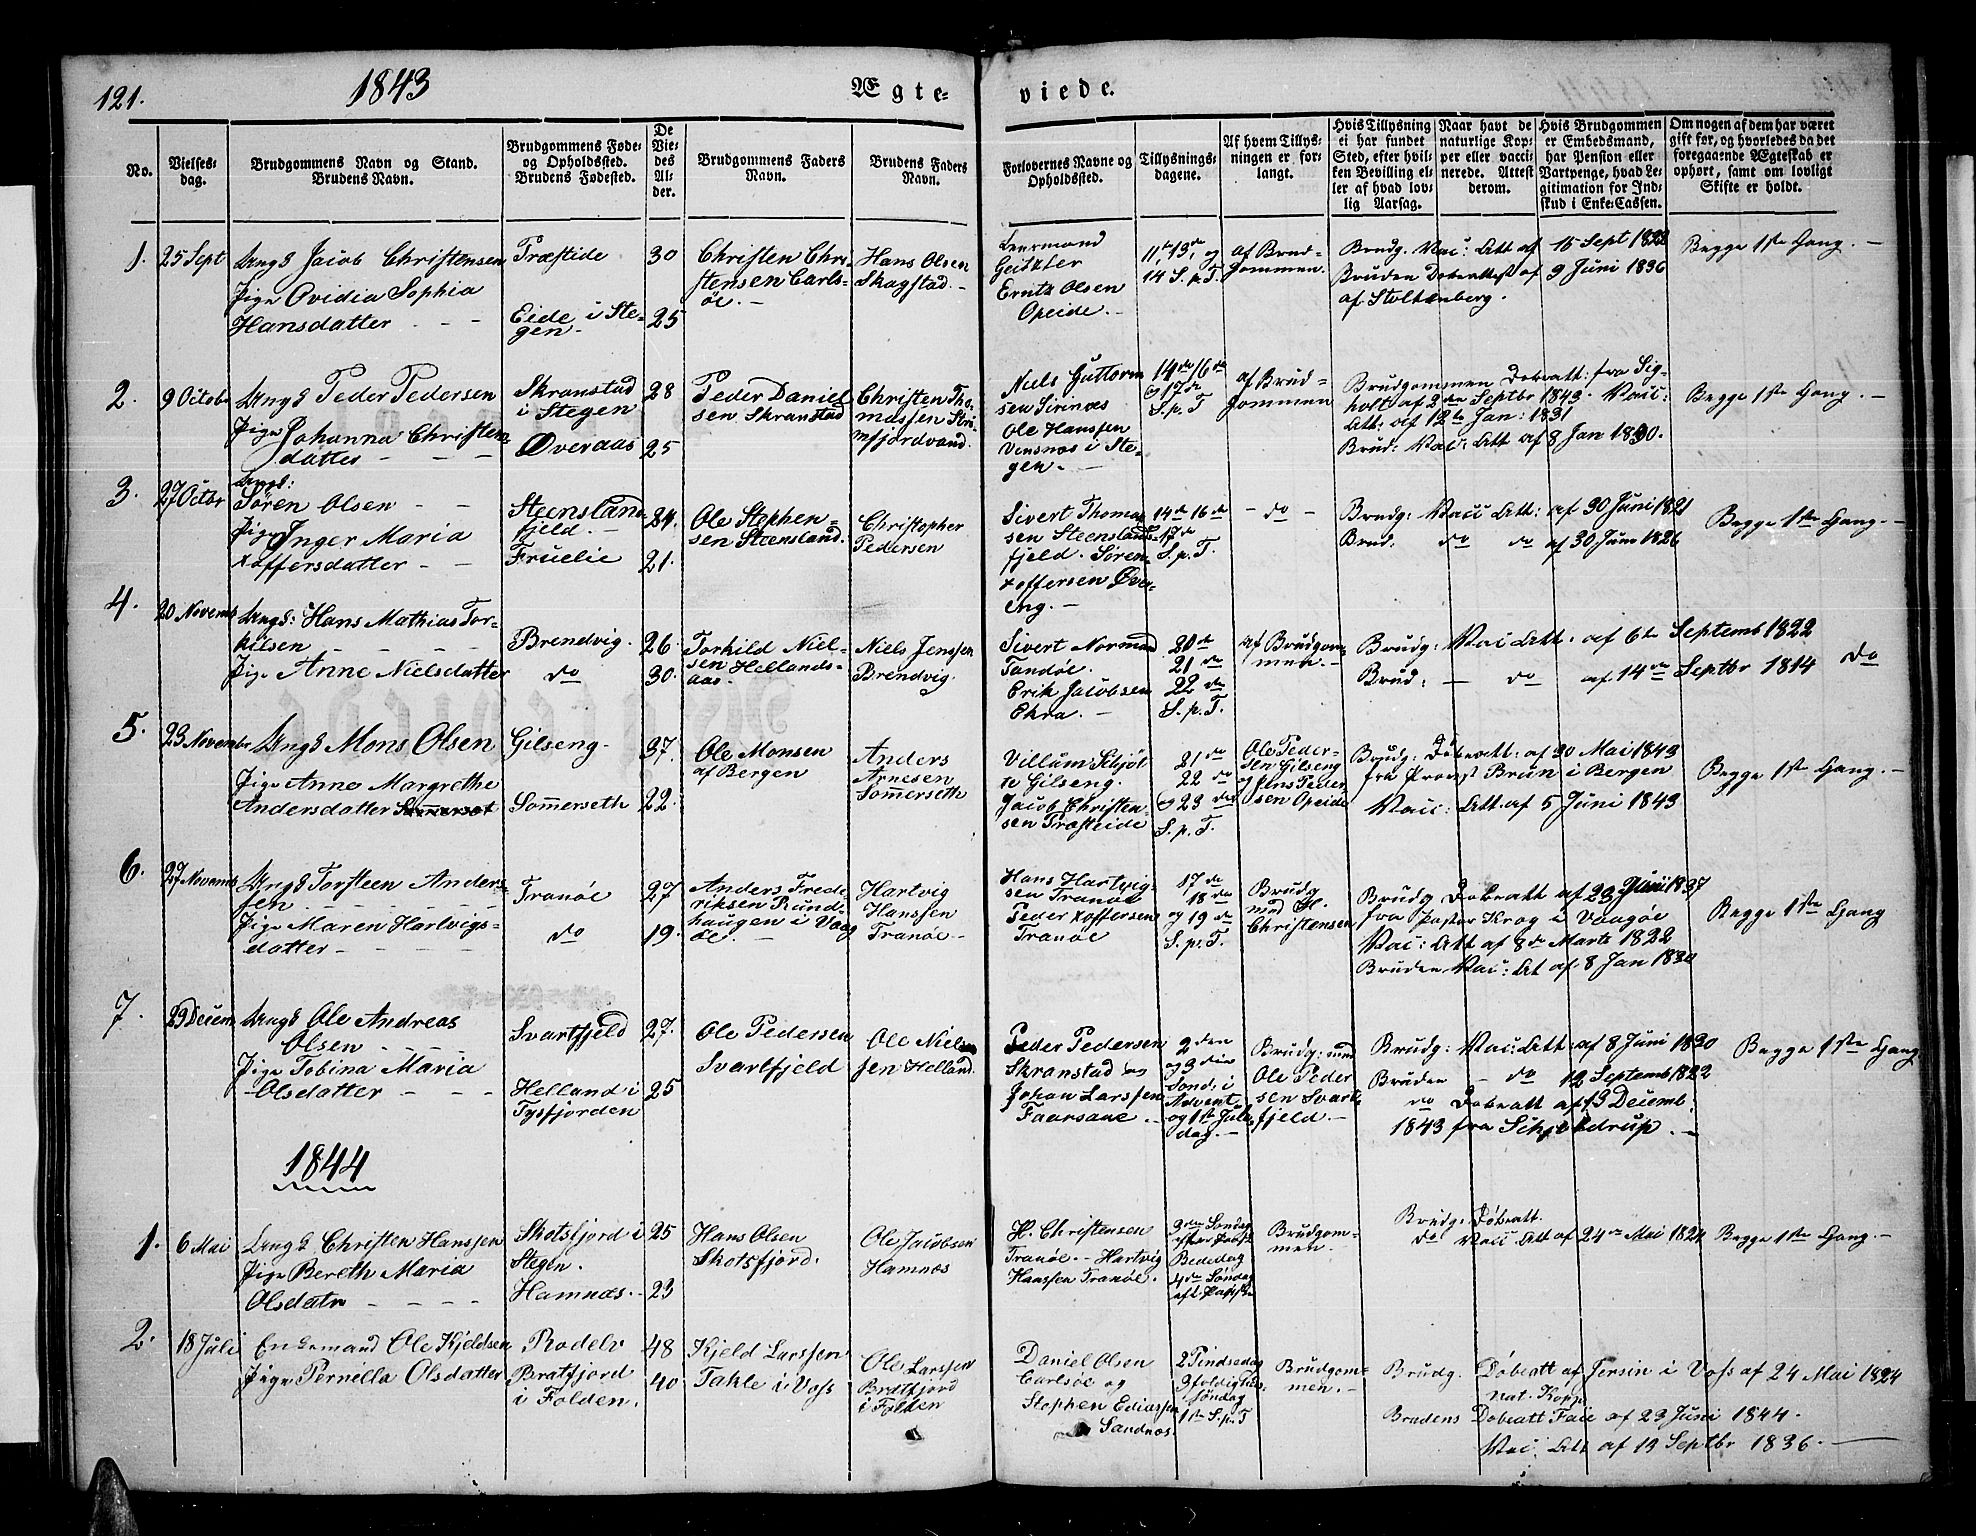 121.
1843
Ægte-
viede.
No.
Vielses-
dag.
Brudgommens Navn og Stand.
Brudens Navn.
Brudgommens Føde-
og Opholdssted.
Brudens Fødested.
De
Vie-
des
Al-
der.
Brudgommens Faders
Navn.
Brudens Faders
Navn.
Forlovernes Navne og
Opholdssted.
Tillysnings-
dagene.
Af hvem Tillys-
ningen er for-
langt.
Hvis Tillysning
ei har fundet
Sted, efter hvil-
ken Bevilling el-
ler af hvad lov-
lig Aarsag.
Naar havt de
naturlige Kop-
per eller vacci-
nerede. Attest
derom.
Hvis Brudgommen
er Embedsmand,
har Pension eller
Vartpenge, hvad Le-
gitimation for Ind-
skud i Enke-Cassen.
Om nogen af dem har været
gift før, og hvorledes da det
foregaaende Ægteskab er
ophørt, samt om lovligt
Skifte er holdt.
1.
25 Sept
Ungk Jacob Christensen
Pige Ovidia Sophia
Hansdatter - -
Træstide
Eide i Ste-
gen -
30
25
Christen Chri-
stensen Carls-
öe. -
Hans Olsen
Skagstad. -
Geitzler
Erntz Olsen
Opeide. -
11te 13de og
14 S. p. T.
af Brud-
gommen.
Brudg. Vac: Att af 15 Sept 1828
Bruden Dobeattest af 9 Juni 1836
af Stoltenberg.
Begge 1ste Gang. -
2.
9 Octobr
Ungk Peder Pedersen
Pige Johanna Christen
datter - - -
Skranstad
i Stegen
Överaas
28
25
Peder Daniel
sen Skranstad
Christen Tho-
massen Strö-
msfjordvand.
Niels Guttorm
sen Sirinæs
Ole Hanssen
Vinsnæs i Ste-
gen. -
14de 16de
og 17de
S. p. T
af Brud-
gommen
Brudgommen Dobeatt: fra Sig-
holt af 2den Septbr 1843. Vacc:
Att: af 12te Jan: 1831
Brud: Vac: Att af 8 Jan 1830.
Begge 1ste Gang. -
3.
27 Octbr
Ungk:
Sören Olsen - -
Pige Inger Maria
xoffersdatter - -
Steensland
fjeld. -
Fruelie
24.
21.
Ole Stephen-
sen Steensland.
Christopher
Pedersen
Sivert Thomas
sen Steenslands-
fjeld. Sören
xoffersen Över-
eng. -
14de 16de
17de
S. p. T.
- do -
Brudg: Vacc Att: af 30 Juni 1821
Brud: do do af 30 Juni 1826
Begge 1ste Gang. -
4.
20 Novemb
Ungk: Hans Mathias Tor-
kilsen - - - -
Pige Anne Nielsdatter
Brendvig.
do
26
30.
Torkild Niel-
sen Hellands-
aas.
Niels Jenssen
Brendvig.
Sivert Normand
Tandöe.
Erik Jacobsen
Ekra. -
20de
21 de
22 de
S. p. T.
af Brudgom-
men. -
Brudg: Vac Att: af 6te Septemb 1822
Brud: - do af 14de Septbr 1814
do
5.
23 Novembr
Ungk Mons Olsen
Pige Anne Margrethe
Andersdatter Sommerset
Gilseng.
Sommerseth
37.
22.
Ole Monsen
af Bergen
Anders
Arnesen
Sommerseth
Villum Skjöt
te Gilseng.
Jacob Christen-
sen Træsteide
21 de
22 do
og 23 de
S. p. T.
Ole Peder-
sen Gilseng
og Jens Peder
sen Opeide
Brudg: Dobeatt: af 30 Mai 1843
fra Provst Brun i Bergen
Vacc: Att. af 5 Juni 1843
Begge 1ste Gang. -
6.
27 Novemb
Ungk Torsteen Anders-
sen - - - -
Pige Maren Hartvigs-
datter - - -
Tranöe
do
27
19.
Anders Frede
riksen Rund-
haugen i Vaag
öe. -
Hartvig
Hanssen
Tranöe -
Hans Hartvig-
sen Tranöe
Peder xoffersen
Tranöe
17 de
18 de
og 19 de
S. p. T.
Brudg
med H.
Christensen
Brudg Dobeatt af 23 Juni 1837
fra Pastor Krog i Vaagöe
Vac: Att af 8de Marts 1822
Bruden Vac: At af 8 Jan 1830
Begge 1ste Gang
7.
29 Decem
Ungk Ole Andreas
Olsen - - - -
Pige Tobina Maria
Olsdatter - - -
Svartfjeld
Helland i
Tysfjorden
27.
25
Ole Pedersen
Svartfjeld
Ole Niel
sen Helland
Peder Pedersen
Skranstad og
Johan Larssen
Faarsane -
2 den
og 3 die
Sönd. i
Advent
og 1ste Jule
dag. -
Brudg: med
Ole Peder
sen Svart-
fjeld. -
Brudg: Vac: Att: af 8 Juni 1820
Bruden - do 12 Septemb 1822
do Dobeatt af 13 Decemb:
1843 fra Schjeldrup. -
Begge 1ste Gang
1844
1.
6 Mai
Ungk Christen Hanssen
Pige Bereth Maria
Olsdatr - - - -
Skotsfjord i
Stegen.
Hamnæs. -
25
23
Hans Olsen
Skotsfjord.
Ole Jacobsen
Hamnæs
H. Christensen
Tranöe. - Hartvig
Hanssen Tranöe.
3die Sondag
efter Paaske
Bededag
4de Söndag
eft. Paaske
Brudgom-
men.
Brudg: Döbeatt.
do Vacc Att af 24de Mai 1824
Begge 1ste Gang. -
2.
18 Juli
Enkemand Ole Kjeldsen
Pige Pernella Olsdatter
Rodelv
Bratfjord
i Folden.
48
40
Kjeld Larssen
Takle i Voss
Ole Larssen
Bratfjord
i Folden
Daniel Olsen
Carlsöe og
Stephen Eliassen
Sandnæs.
2 Pindsedag
3foldigheds
Söndag
1ste S. p. T
Brudgom-
men. -
Brudg. Döbeatt af Jersin i Voss af 24 Mai 1824
nat. Kopp.
Brudens Dobeatt Faie af 23 Juni 1844.
Vac: Att af 19 Septbr 1836. -